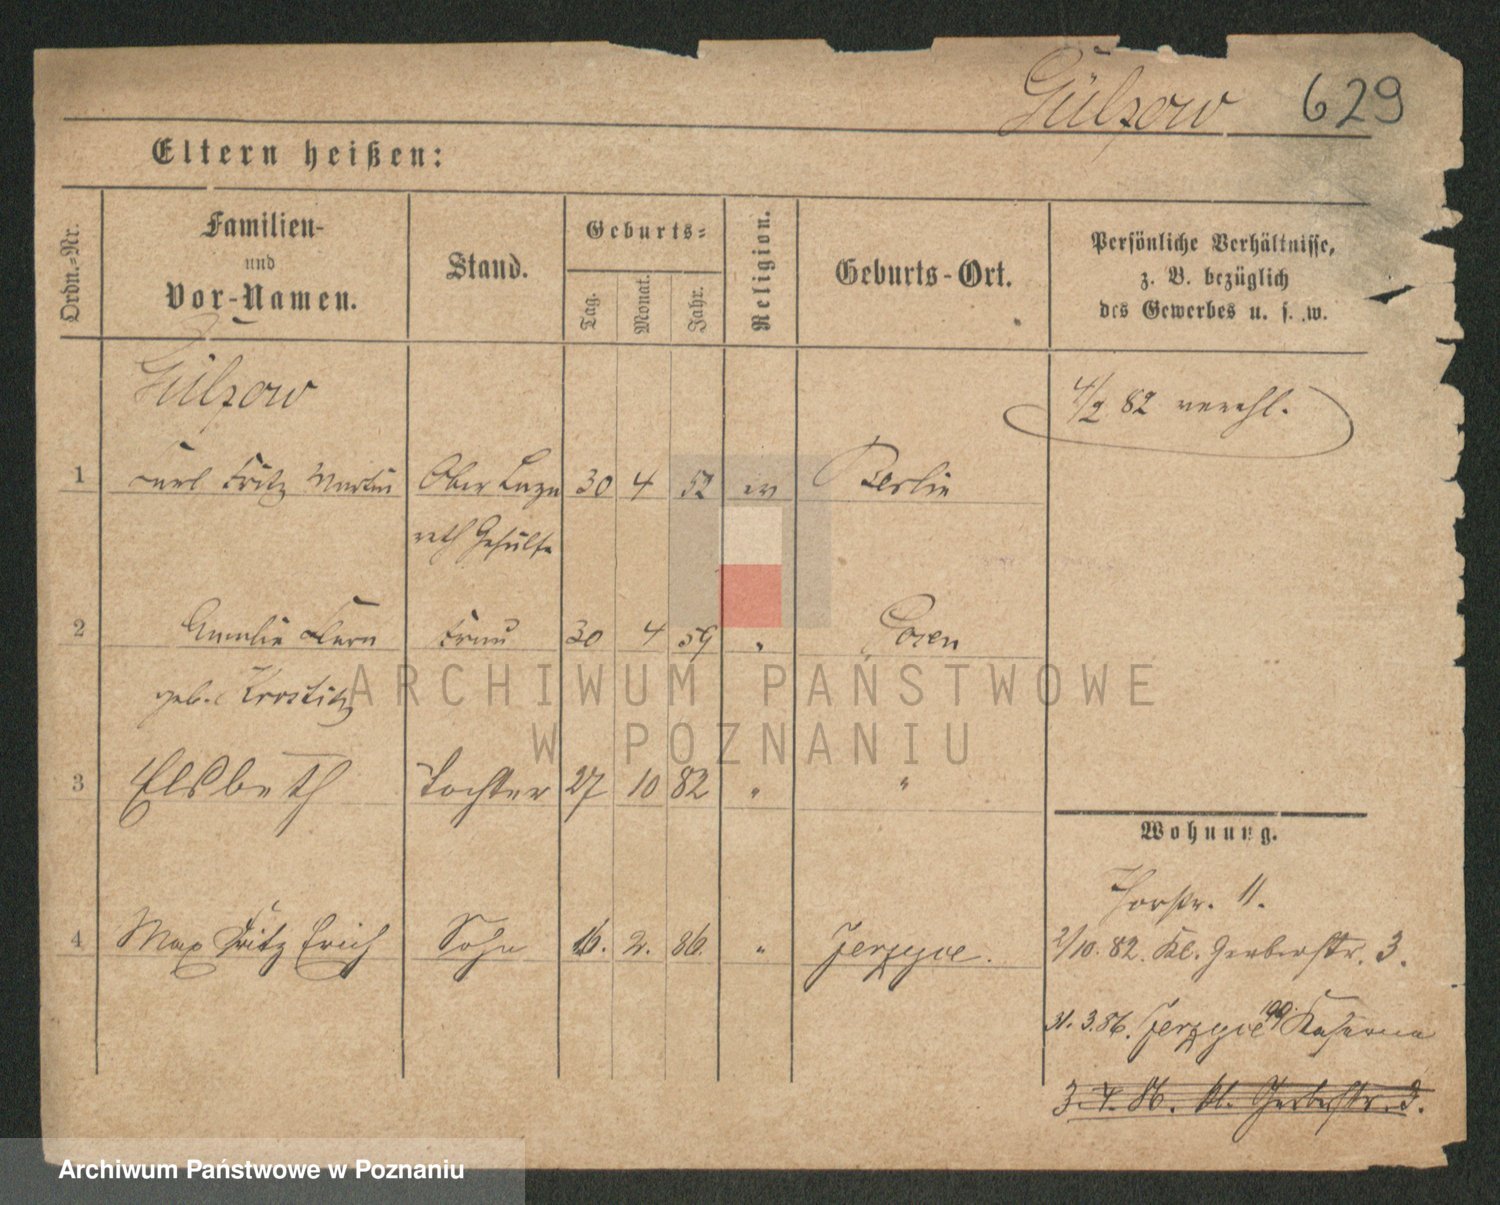 Gülzow 629
Eltern heißen:
Ordn.-Nr.
Familien-
und
Vor-Namen.
Stand.
Geburts-
Tag.
Monat.
Jahr.
Religion.
Geburts-Ort.
Persönliche Verhältnisse,
z. B. bezüglich
des Gewerbes u. s. w.
Gülzow
4/2 82 verehl.
1 Carl Fritz Martin Ober Laza 30 4 52 ev Berlin
reth Gehülfe
2 Amalie Clara Frau 30 4 59 " Posen
geb.
3 Elsbeth Tochter 27 10 82 " "
Wohnung.
Thorstr. 11.
4 Max Fritz Erich Sohn 16. 2. 86. " Jerzyce.
2/10. 82. Kl. Gerberstr. 3.
31. 3. 86. Jerzyce Kaserne
3. 4. 86. Kl. Gerberstr. 3.
ARCHIWUM PAŃSTWOWE
W POZNANIU
Archiwum Państwowe w Poznaniu